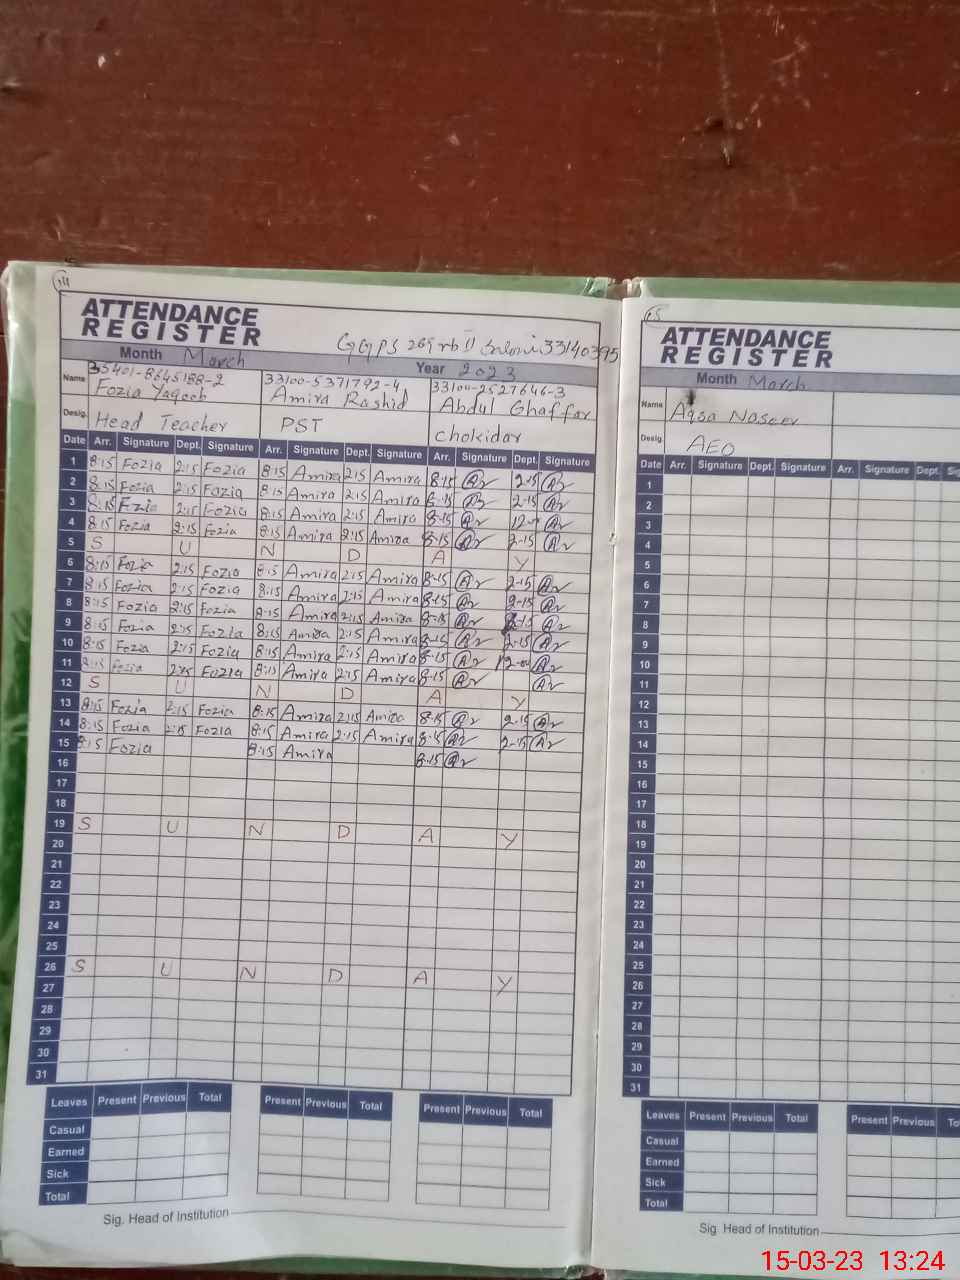 ATTENDANCE
REGISTER
GGPS 269 rb II 33140395
Month March Year 2023
Name 35401-8645188-2 33100-5371792-4 33100-2527646-3
Fozia Yaqoob Amira Rashid Abdul Ghaffar
Desig. Head Teacher PST chokidar
Date Arr. Signature Dept. Signature Arr. Signature Dept. Signature Arr. Signature Dept. Signature
1 8:15 Fozia 2:15 Fozia 8:15 Amira 2:15 Amira 8-15 2-15
2 8:15 Fozia 2:15 Fozia 8:15 Amira 2:15 Amira 8-15 2-15
3 8:15 Fozia 2:15 Fozia 8:15 Amira 2:15 Amira 8-15
4 8:15 Fozia 2:15 Fozia 8:15 Amira 2:15 Amira 8-15 2-15
5 S U N D A Y
6 8:15 Fozia 2:15 Fozia 8:15 Amira 2:15 Amira 8-15 2-15
7 8:15 Fozia 2:15 Fozia 8:15 Amira 2:15 Amira 8-15 2-15
8 8:15 Fozia 2:15 Fozia 8:15 Amira 2:15 Amira 8-15
9 8:15 Fozia 2:15 Fozia 8:15 Amira 2:15 Amira 8-15 2-15
10 8:15 Fozia 2:15 Fozia 8:15 Amira 2:15 Amira 8-15 12-00
11 8:15 Fozia 2:15 Fozia 8:15 Amira 2:15 Amira 8-15
12 S U N D A Y
13 8:15 Fozia 2:15 Fozia 8:15 Amira 2:15 Amira 8-15 2-15
14 8:15 Fozia 2:15 Fozia 8:15 Amira 2:15 Amira 8-15 2-15
15 8:15 Fozia 8:15 Amira 8-15
16
17
18
19 S U N D A Y
20
21
22
23
24
25
26 S U N D A Y
27
28
29
30
31
Leaves Present Previous Total Present Previous Total Present Previous Total
Casual
Earned
Sick
Total
Sig. Head of Institution
ATTENDANCE
REGISTER
Month March
Name Aqsa Naseer
Desig. AEO
Date Arr. Signature Dept. Signature Arr. Signature Dept.
1
2
3
4
5
6
7
8
9
10
11
12
13
14
15
16
17
18
19
20
21
22
23
24
25
26
27
28
29
30
31
Leaves Present Previous Total Present Previous
Casual
Earned
Sick
Total
Sig. Head of Institution
15-03-23 13:24